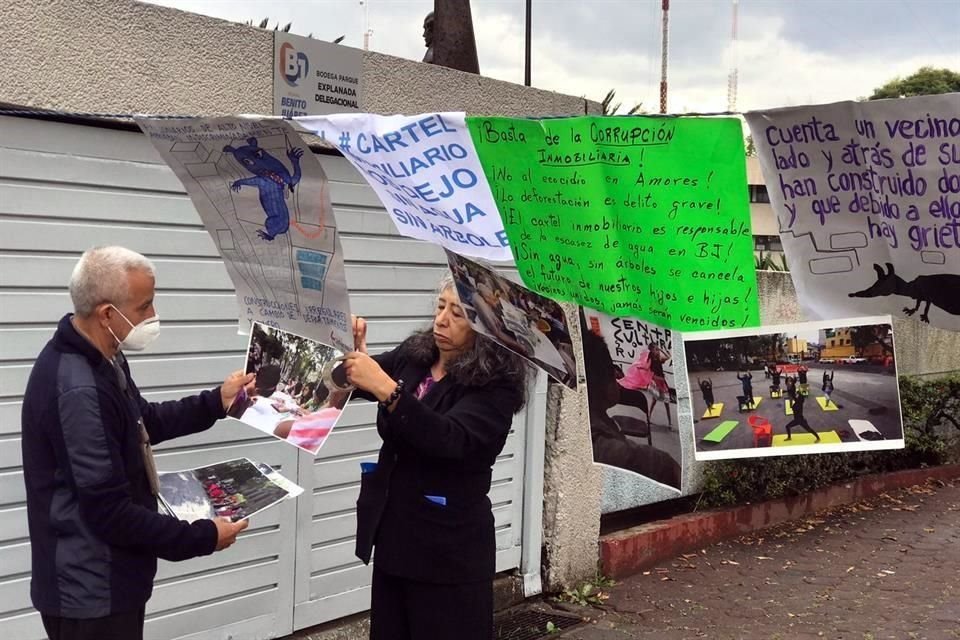 BJ
BENITO JUÁREZ
BODEGA PARQUE
EXPLANADA
DELEGACIONAL
CONSTRUCCIONES
IRREGULARES
A CAMBIO DE
DEPARTAMENTOS
#CARTEL
SIN ARBOLE
¡Basta de la CORRUPCIÓN
INMOBILIARIA!
¡No al ecocidio en Amores!
¡La deforestación es delito grave!
¡El cartel inmobiliario es responsable
de la escasez de agua en BJ!
¡Sin agua, sin árboles se cancela
el futuro de nuestros hijos e hijas!
¡Vecinos unidos, jamás serán vencidos!
Cuenta un vecino
lado y atrás de su
han construido do
y que debido a ello
hay griet
CENT
CULTUR